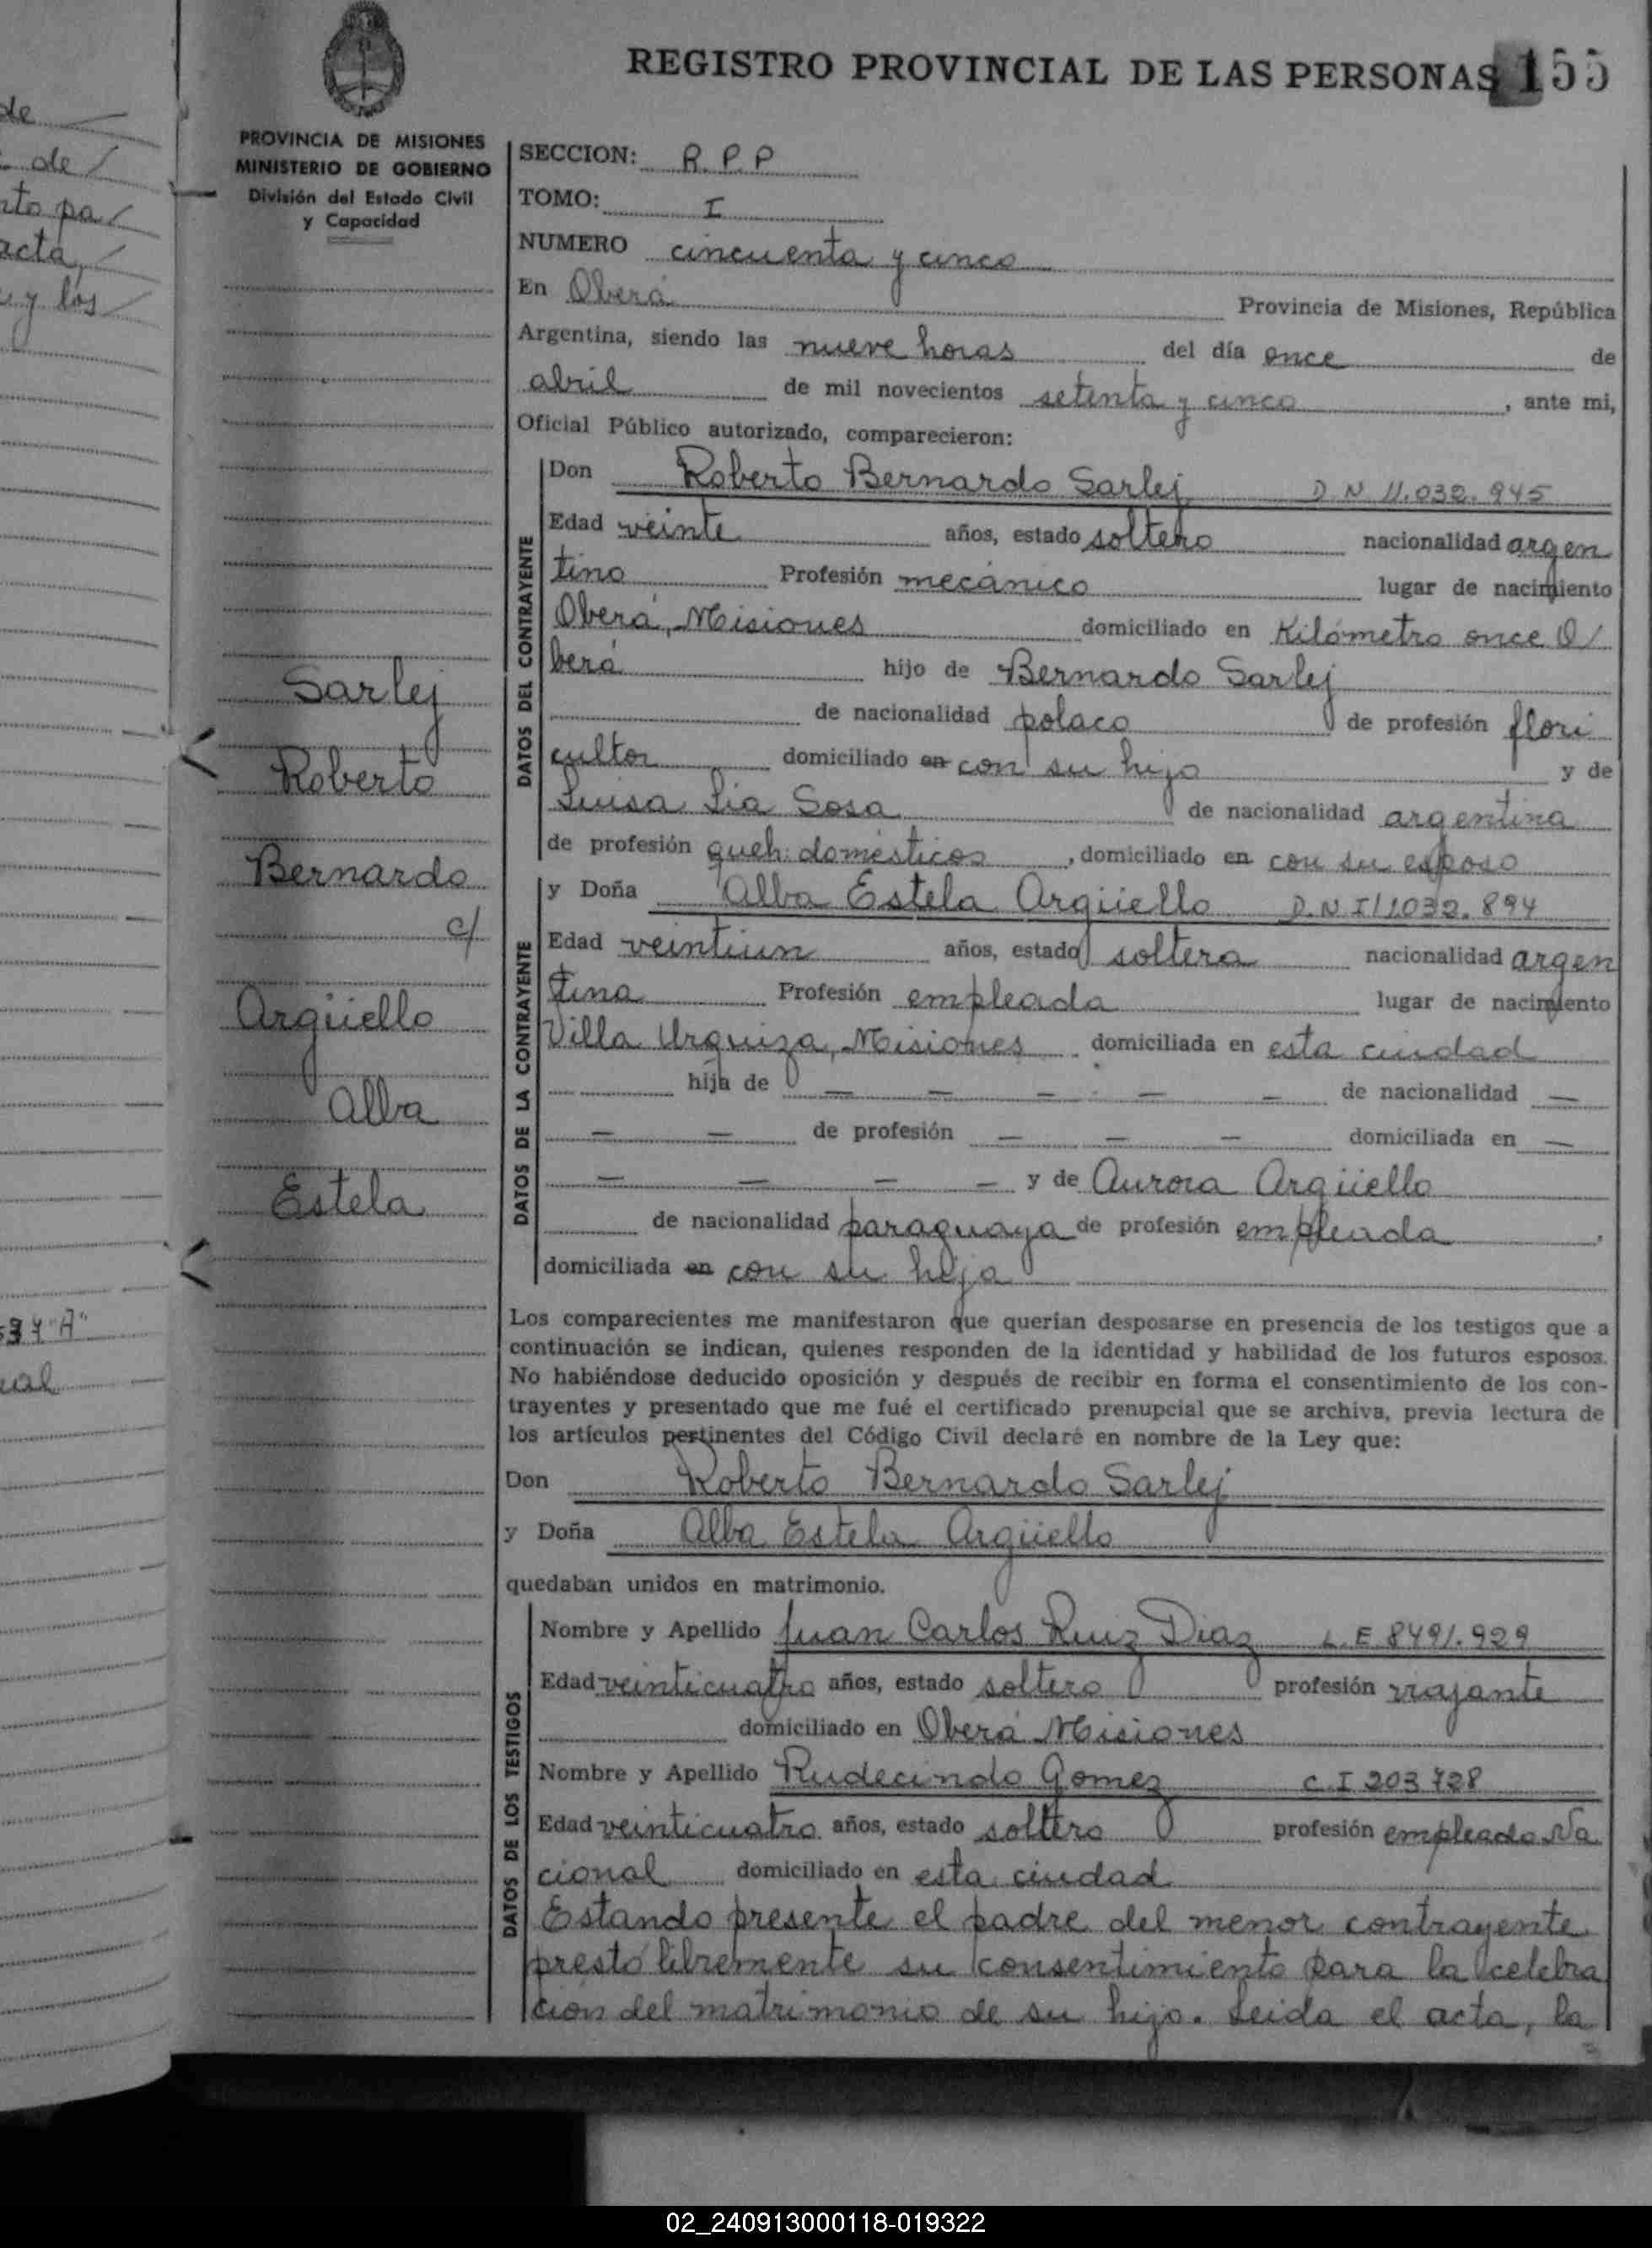 REGISTRO PROVINCIAL DE LAS PERSONAS 155
PROVINCIA DE MISIONES
MINISTERIO DE GOBIERNO
División del Estado Civil
y Capacidad
de
de /
pa /
acta, /
y los /
"A"
SECCION: R.P.P
TOMO: I
NUMERO cincuenta y cinco
En Oberá Provincia de Misiones, República
Argentina, siendo las nueve horas del día once de
abril de mil novecientos setenta y cinco, ante mi,
Oficial Público autorizado, comparecieron:
Sarlej
Roberto
Bernardo
c/
Argüello
Alba
Estela
DATOS DEL CONTRAYENTE
Don Roberto Bernardo Sarlej D N 11.032.945
Edad veinte años, estado soltero nacionalidad argen
tino Profesión mecánico lugar de nacimiento
Oberá, Misiones domiciliado en Kilómetro once O/
berá hijo de Bernardo Sarlej
de nacionalidad polaco de profesión flori
cultor domiciliado en con su hijo y de
Luisa Lia Sosa de nacionalidad argentina
de profesión queh. domésticos, domiciliado en con su esposo
DATOS DE LA CONTRAYENTE
y Doña Alba Estela Argüello D.N.I 11032.894
Edad veintiun años, estado soltera nacionalidad argen
tina Profesión empleada lugar de nacimiento
Villa Urquiza, Misiones domiciliada en esta ciudad
hija de — — — — — de nacionalidad —
— — de profesión — — — domiciliada en —
— — — — y de Aurora Argüello
de nacionalidad paraguaya de profesión empleada,
domiciliada en con su hija
Los comparecientes me manifestaron que querían desposarse en presencia de los testigos que a
continuación se indican, quienes responden de la identidad y habilidad de los futuros esposos.
No habiéndose deducido oposición y después de recibir en forma el consentimiento de los con-
trayentes y presentado que me fué el certificado prenupcial que se archiva, previa lectura de
los artículos pertinentes del Código Civil declaré en nombre de la Ley que:
Don Roberto Bernardo Sarlej
y Doña Alba Estela Argüello
quedaban unidos en matrimonio.
DATOS DE LOS TESTIGOS
Nombre y Apellido Juan Carlos Ruiz Diaz L.E 8491.929
Edad veinticuatro años, estado soltero profesión viajante
domiciliado en Oberá Misiones
Nombre y Apellido Rudecindo Gomez C.I 203728
Edad veinticuatro años, estado soltero profesión empleado Na
cional domiciliado en esta ciudad
Estando presente el padre del menor contrayente
prestó libremente su consentimiento para la celebra
ción del matrimonio de su hijo. Leida el acta, la
02_240913000118-019322